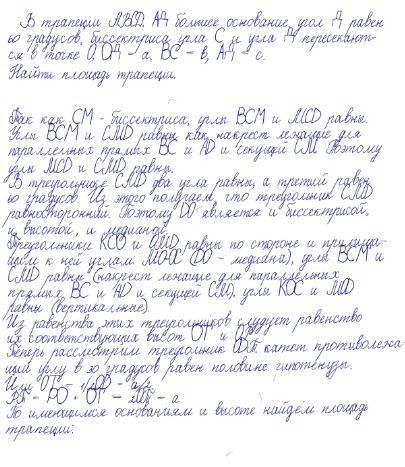 В трапеции ABCD АД большее основание, угол Д равен
60 градусов, биссектриса угла С и угла Д пересекают-
ся в точке О, ОД = а, ВС = в, АД = с.
Найти площадь трапеции.
Так как СМ - биссектриса, углы ВСМ и MCD равны.
Углы ВСМ и CMD равны как накрест лежащие для
параллельных прямых ВС и AD и секущей СМ. Поэтому
углы MCD и CMD равны.
В треугольнике CMD два угла равны, а третий равен
60 градусов. Из этого получаем, что треугольник CMD
равносторонний. Поэтому DO является и биссектрисой,
и высотой, и медианой.
Треугольники КСО и OMD равны по стороне и прилежа-
щим к ней углам: МО=ОС (DO - медиана), углы ВСМ и
CMD равны (накрест лежащие для параллельных
прямых ВС и AD и секущей СМ), углы КОС и MOD
равны (вертикальные).
Из равенства этих треугольников следует равенство
их соответствующих высот ОТ и
Теперь рассмотрим треугольник катет противолежа-
щий углу в 30 градусов равен половине гипотенузы.
Или ОТ = 1/2OD = а/2
= + ОТ = 2ОТ = а
По имеющимся основаниям и высоте найдём площадь
трапеции: